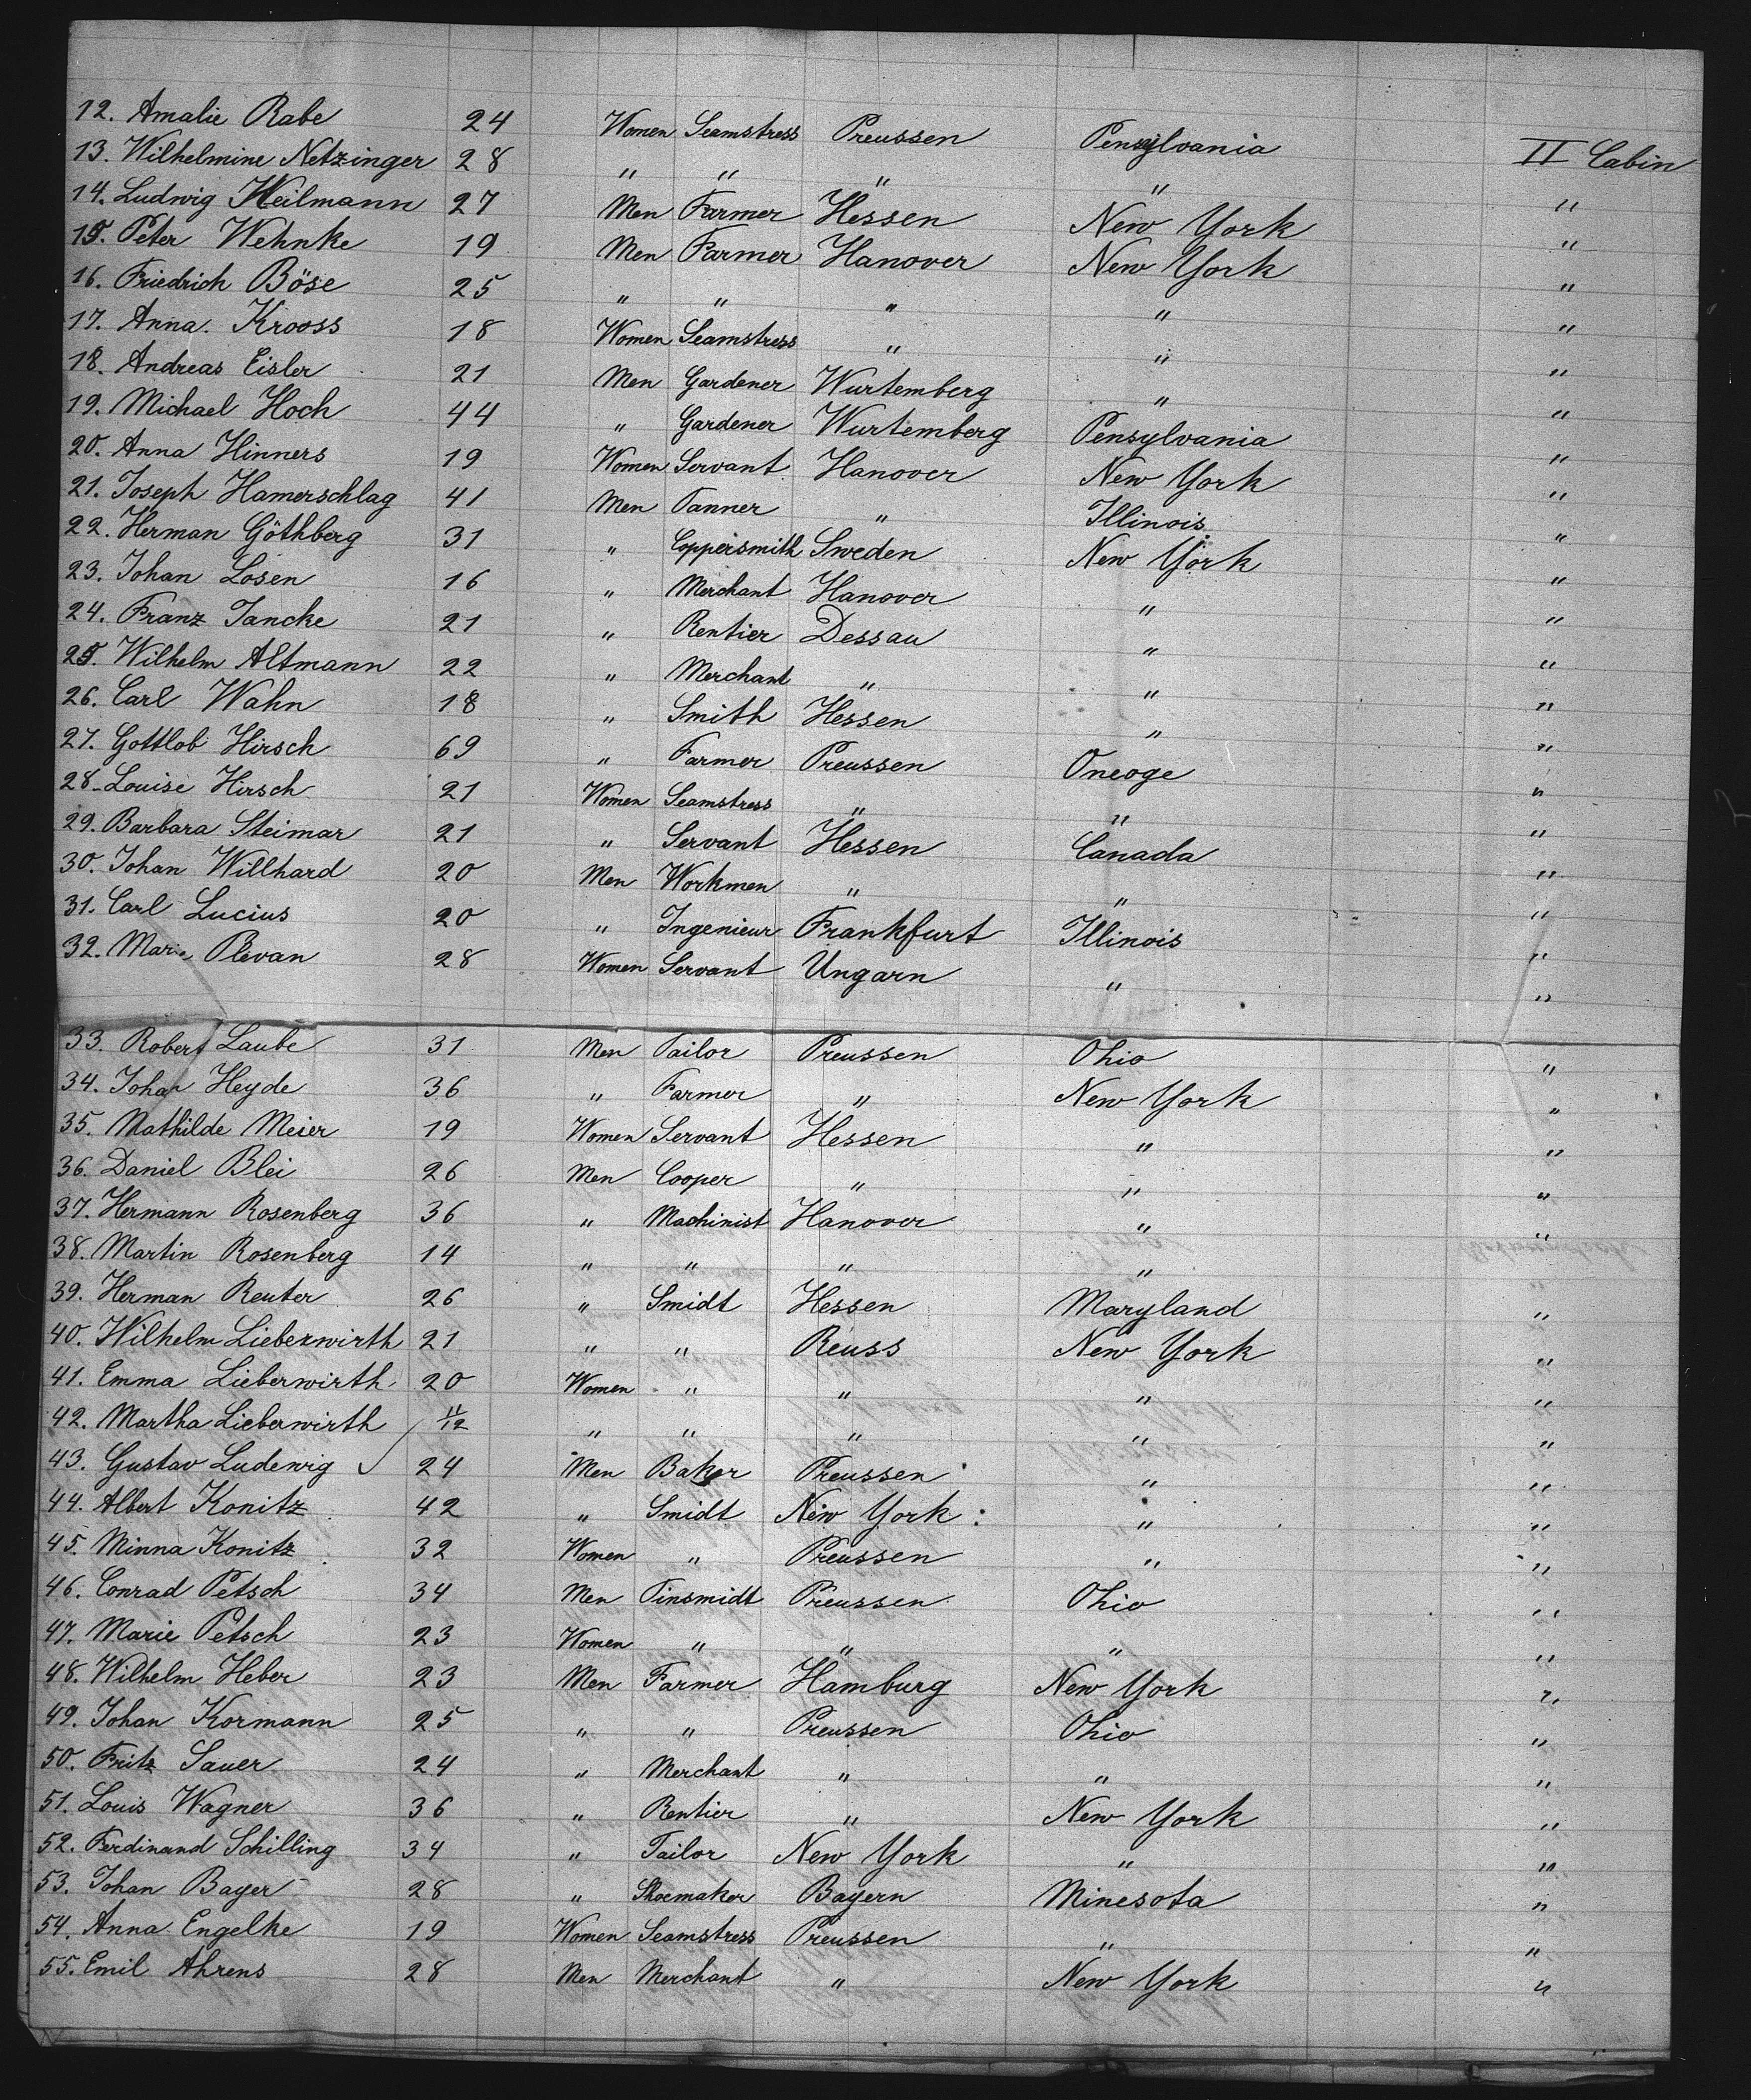 12. Amalie Rabe 24 Women Seamstress Preussen Pensylvania II Cabin
13. Wilhelmine Netzinger 28 " " " " "
14. Ludwig Weilmann 27 Men Farmer Hessen New York "
15. Peter Wehnke 19 Men Farmer Hanover New York "
16. Friedrich Böse 25 " " " " "
17. Anna Krooss 18 Women Seamstress " " "
18. Andreas Eisler 21 Men Gardener Wurtemberg " "
19. Michael Hoch 44 " Gardener Wurtemberg Pensylvania "
20. Anna Hinners 19 Women Servant Hanover New York "
21. Joseph Hamerschlag 41 Men Tanner " Illinois "
22. Herman Göthberg 31 " Coppersmith Sweden New York "
23. Johan Losen 16 " Merchant Hanover " "
24. Franz Jancke 21 " Rentier Dessau " "
25. Wilhelm Altmann 22 " Merchant " " "
26. Carl Wahn 18 " Smith Hessen " "
27. Gottlob Hirsch 69 " Farmer Preussen Oneoge "
28. Louise Hirsch 21 Women Seamstress " " "
29. Barbara Steimar 21 " Servant Hessen Canada "
30. Johan Willhard 20 Men Workmen " " "
31. Carl Lucius 20 " Ingenieur Frankfurt Illinois "
32. Marie Plevan 28 Women Servant Ungarn " "
33. Robert Laube 31 Men Tailor Preussen Ohio "
34. Johan Heyde 36 " Farmer " New York "
35. Mathilde Meier 19 Women Servant Hessen " "
36. Daniel Blei 26 Men Cooper " " "
37. Hermann Rosenberg 36 " Machinist Hanover " "
38. Martin Rosenberg 14 " " " " "
39. Herman Reuter 26 " Smidt Hessen Maryland "
40. Wilhelm Lieberwirth 21 " " Reuss New York "
41. Emma Lieberwirth 20 Women " " " "
42. Martha Lieberwirth 11/12 " " " " "
43. Gustav Ludewig 24 Men Baker Preussen " "
44. Albert Konitz 42 " Smidt New York " "
45. Minna Konitz 32 Women " Preussen " "
46. Conrad Petsch 34 Men Tinsmidt Preussen Ohio "
47. Marie Petsch 23 Women " " " "
48. Wilhelm Heber 23 Men Farmer Hamburg New York "
49. Johan Kormann 25 " " Preussen Ohio "
50. Fritz Sauer 24 " Merchant " " "
51. Louis Wagner 36 " Rentier " New York "
52. Ferdinand Schilling 34 " Tailor New York " "
53. Johan Bayer 28 " Shoemaker Bayern Minesota "
54. Anna Engelke 19 Women Seamstress Preussen " "
55. Emil Ahrens 28 Men Merchant " New York "